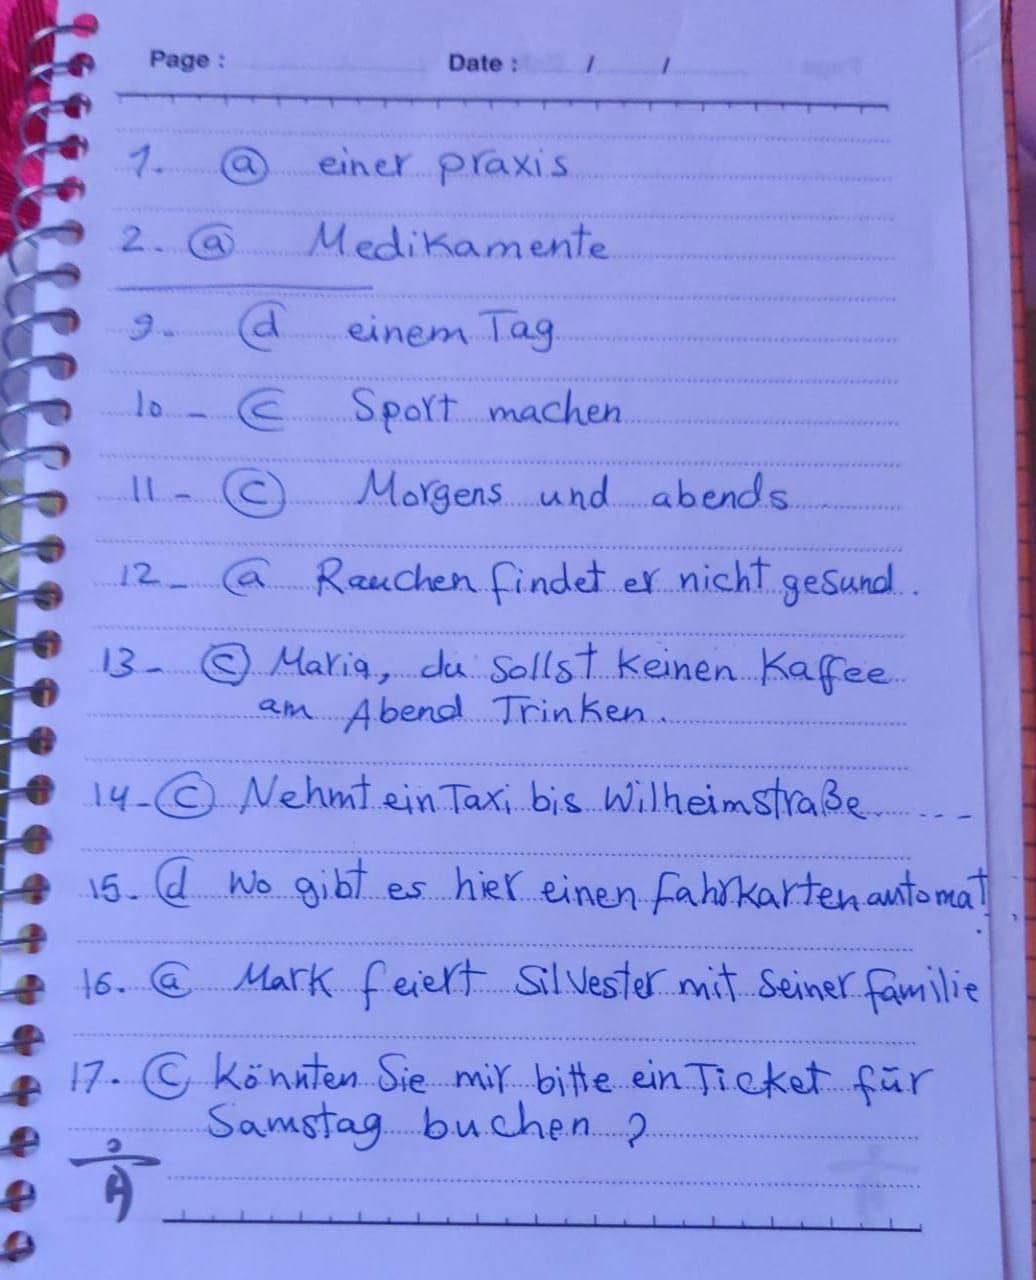 Page :    Date :    /    /
1. ⓐ einer praxis
2. ⓐ Medikamente
9. ⓓ einem Tag
10 - ⓒ Sport machen
11 - ⓒ Morgens und abends
12 - ⓐ Rauchen findet er nicht gesund.
13 - ⓒ Maria, du sollst keinen Kaffee
am Abend Trinken.
14 - ⓒ Nehmt ein Taxi bis Wilheimstraße ...
15. ⓓ Wo gibt es hier einen fahrkartenautomat
16. ⓐ Mark feiert Silvester mit seiner familie
17. ⓒ Könnten Sie mir bitte ein Ticket für
Samstag buchen ?